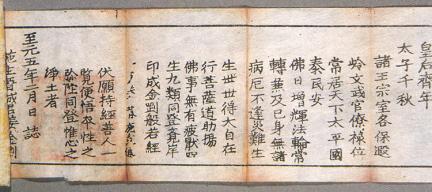 皇后齊年
太子千秋
諸王宗室各保遐
齡文武官僚祿位
常居天下太平國
泰民安
佛日增輝法輪常
轉兼及己身無諸
病厄不逢災難生
生世世得大自在
行菩薩道助揚
佛事無有疲猒四
生九類同登覺岸
印成金剛般若經
伏願持經善人一
覽便悟本性之
同登惟心之
淨土者
至元五年二月日誌